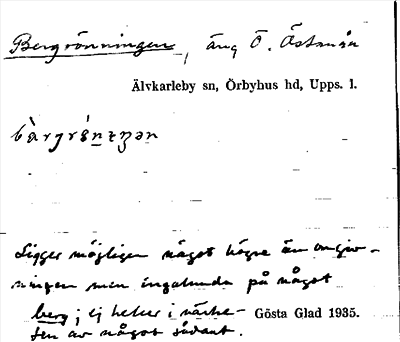 Bergrönningen, äng Ö. Östanån
Älvkarleby sn, Örbyhus hd, Upps. l.
Ligger möjligen något högre än omgiv-
ningen men ingalunda på något
berg; ej heller i närhe-
ten av något sådant. Gösta Glad 1935.